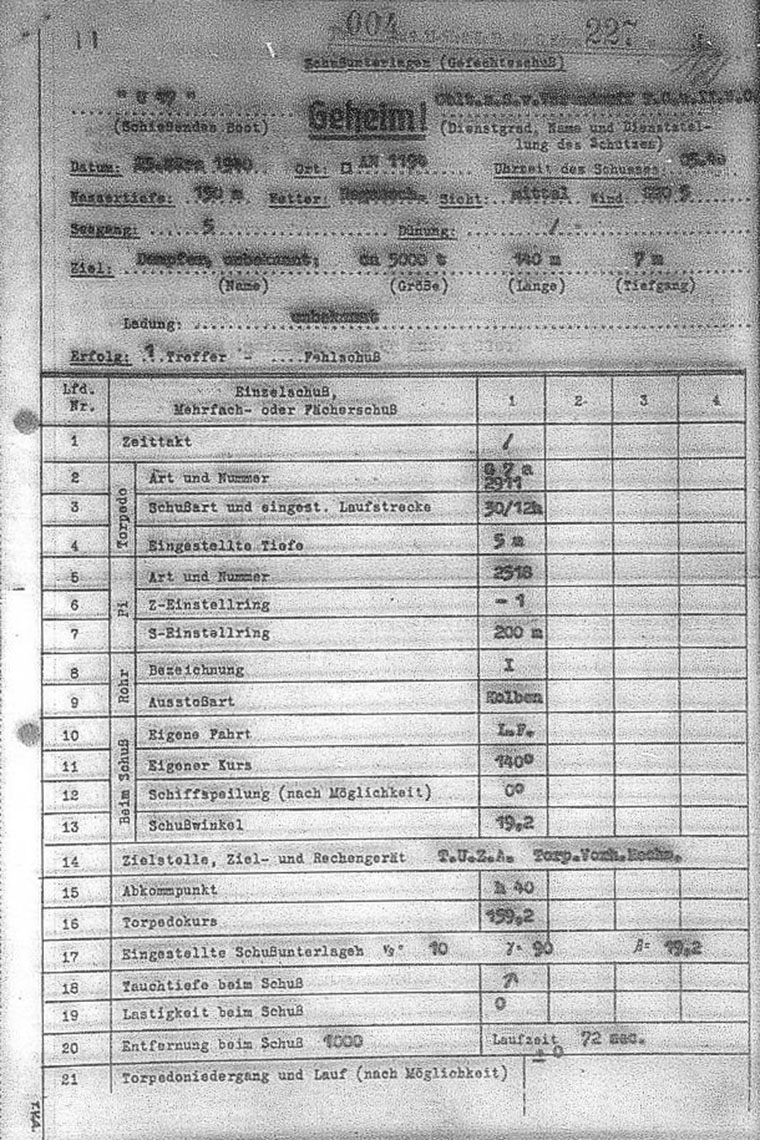 11 004 227
Schußunterlagen (Gefechtsschuß)
" U 47 " Geheim! Oblt.z.S.v.
(Schießendes Boot) (Dienstgrad, Name und Dienststel-
lung des Schützen)
Datum: 25.März 1940 Ort: □ AN 1194 Uhrzeit des Schusses:
Wassertiefe: 150 m Wetter: Sicht: mittel Wind
Seegang: 5 Dünung: / -
Ziel: Dampfer, unbekannt; ca 5000 t 140 m 7 m
(Name) (Größe) (Länge) (Tiefgang)
Ladung: unbekannt
Erfolg: 1 Treffer - .... Fehlschuß
Lfd. Nr. Einzelschuß, Mehrfach- oder Fächerschuß 1 2 3 4
1 Zeittakt /
Torpedo
2 Art und Nummer G 7 a 2911
3 Schußart und eingest. Laufstrecke 30/12h
4 Eingestellte Tiefe 5 m
Pi
5 Art und Nummer 2518
6 Z-Einstellring - 1
7 S-Einstellring 200 m
Rohr
8 Bezeichnung I
9 Ausstoßart Kolben
Beim Schuß
10 Eigene Fahrt L.F.
11 Eigener Kurs 140°
12 Schiffspeilung (nach Möglichkeit) 0°
13 Schußwinkel 19,2
14 Zielstelle, Ziel- und Rechengerät T.U.Z.A. Torp.Vorh.Rechn.
15 Abkommpunkt h 40
16 Torpedokurs 159,2
17 Eingestellte Schußunterlagen Vg= 10 γ= 90 β= 19,2
18 Tauchtiefe beim Schuß
19 Lastigkeit beim Schuß 0
20 Entfernung beim Schuß 1000 Laufzeit 72 sec.
± 0
21 Torpedoniedergang und Lauf (nach Möglichkeit)
TKA